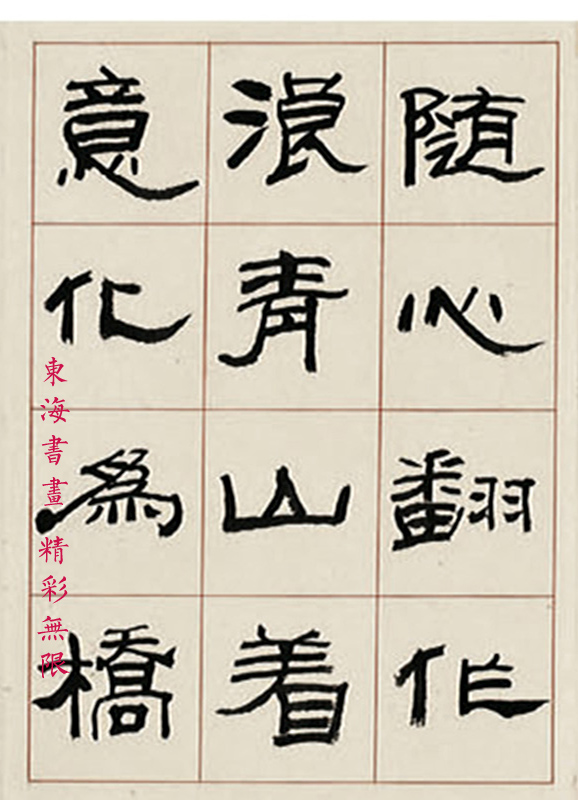 随心翻作
浪青山着
意化為橋
東海書畫精彩無限